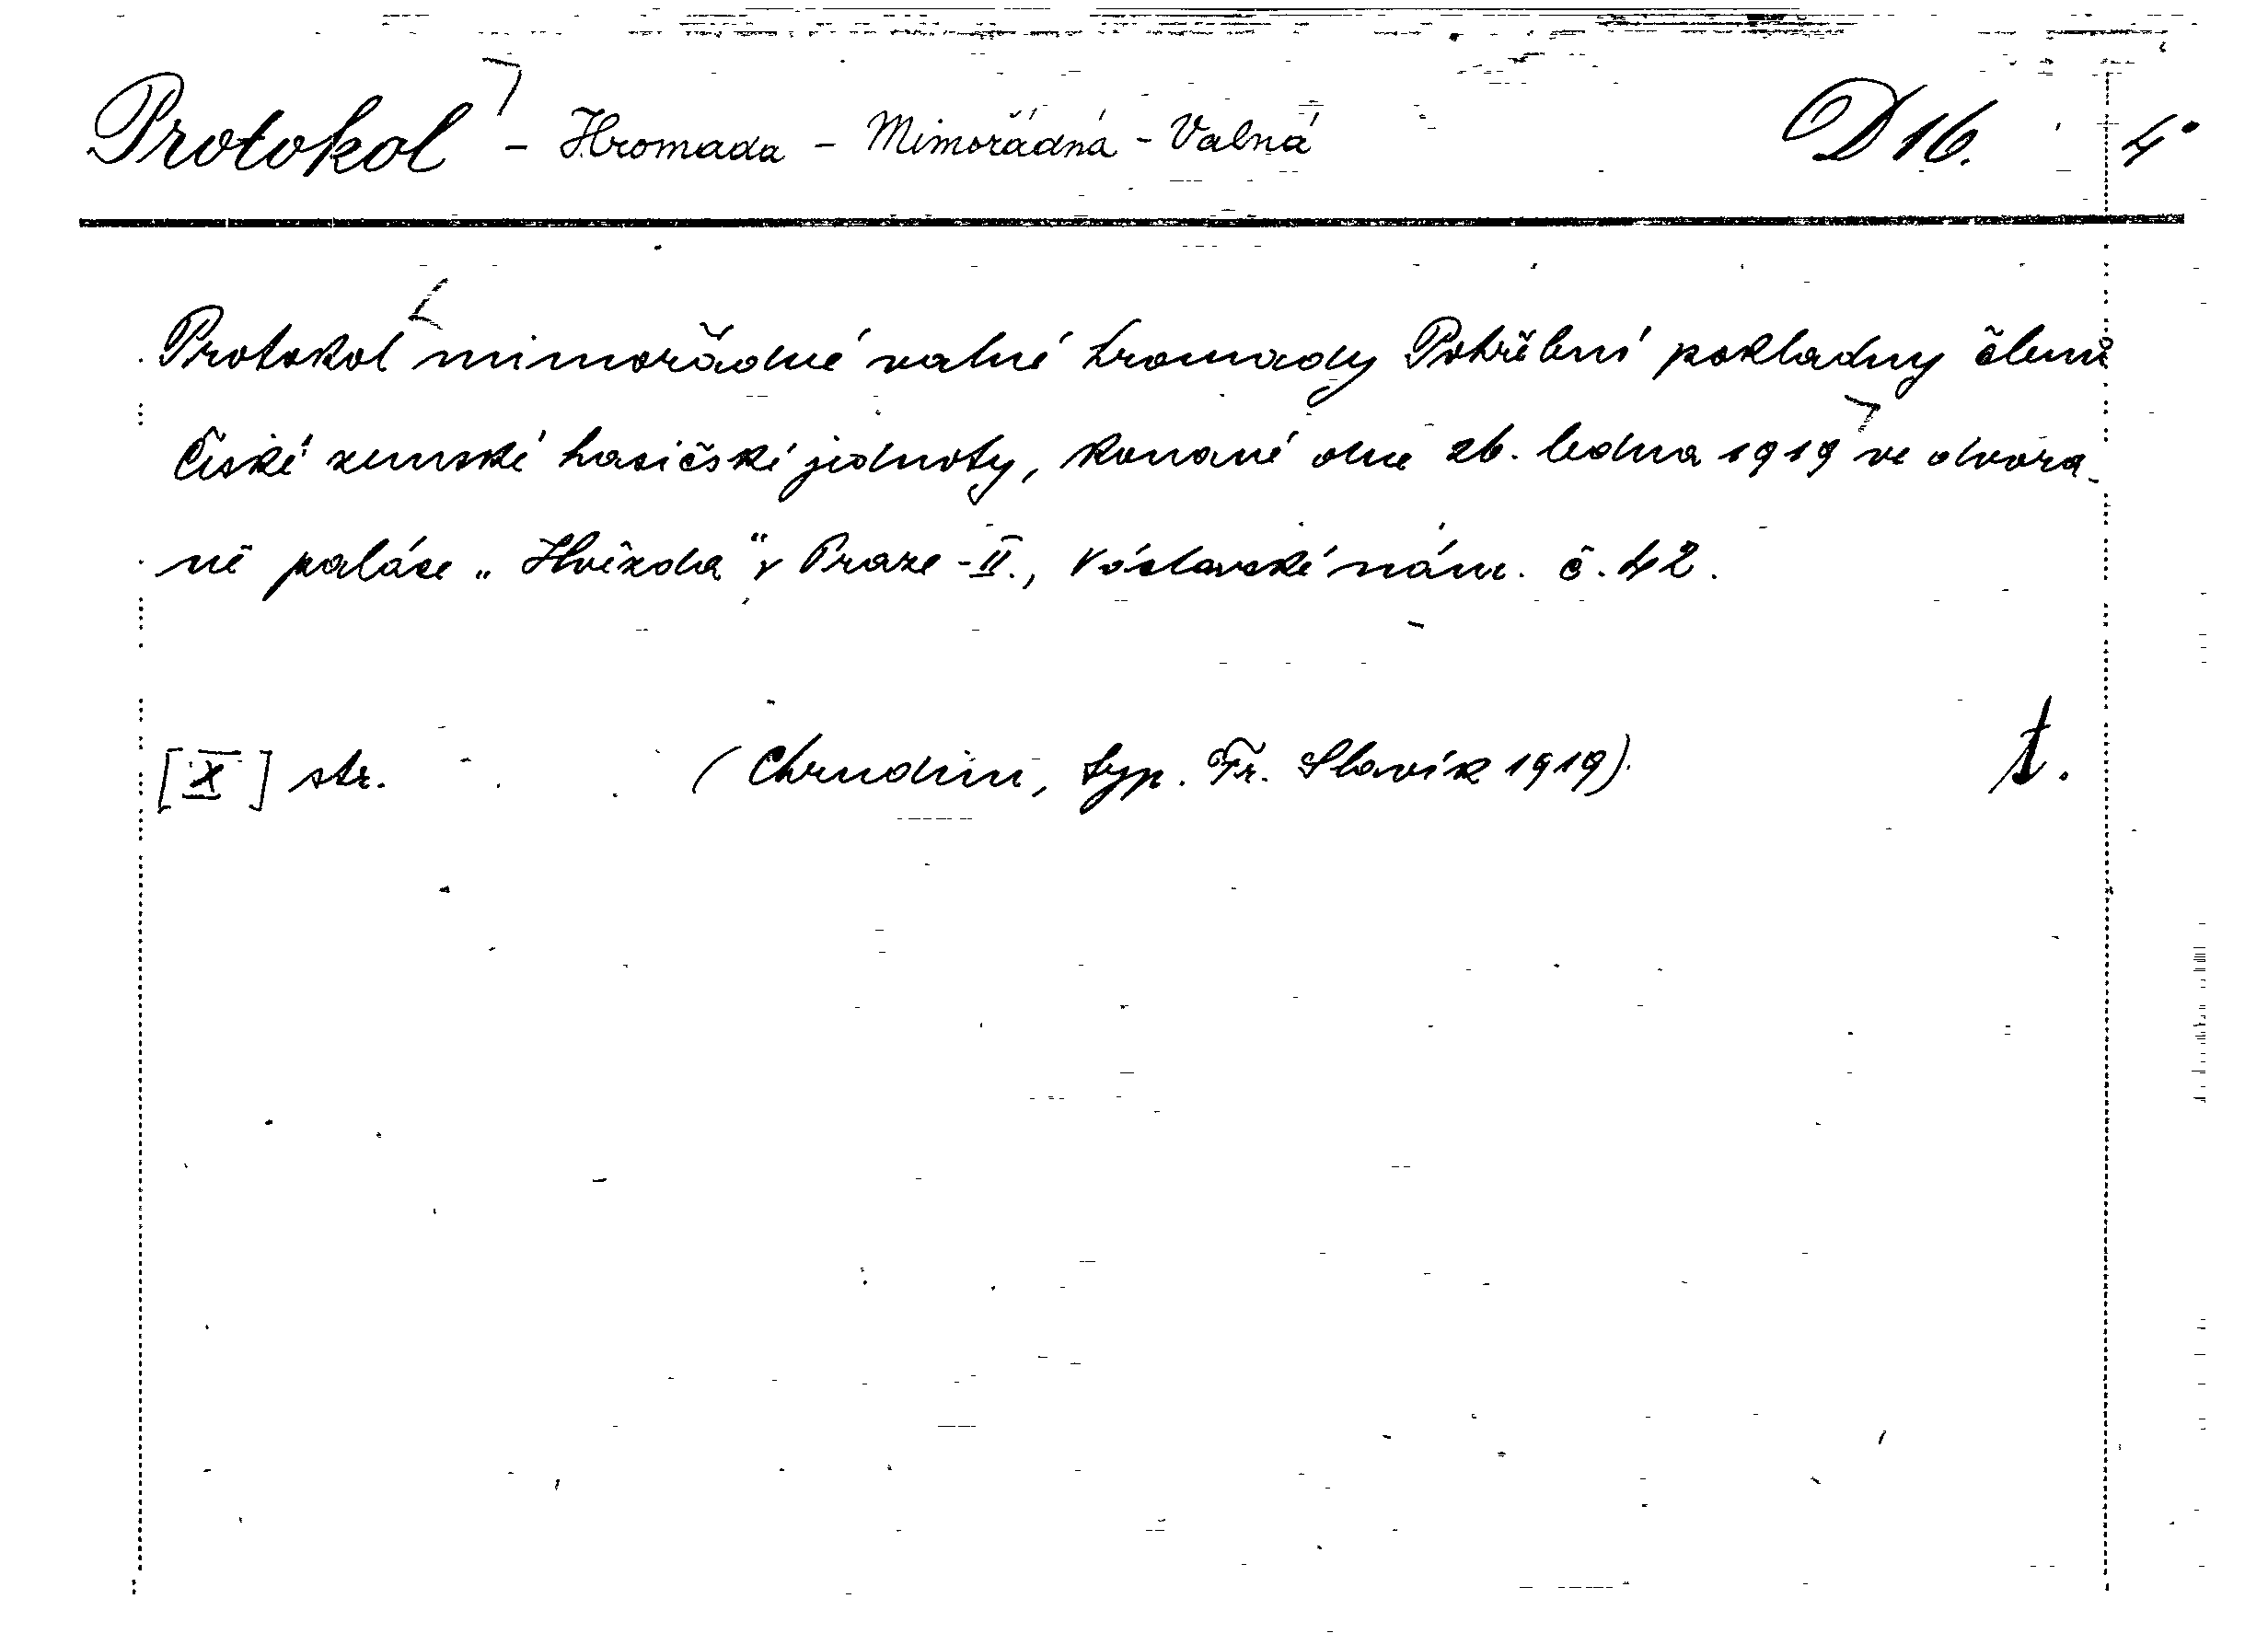 Protokol - Hromada - Mimořádná - Valná D 16. 4°
Protokol mimořádné valné hromady Pohřební pokladny členů
České zemské hasičské jednoty, konané dne 26. ledna 1919 ve dvora-
ně paláce „Hvězda" v Praze - II., Václavské nám. č. 42.
[X] str. (Chrudim, typ. Fr. Slavík 1919). t.